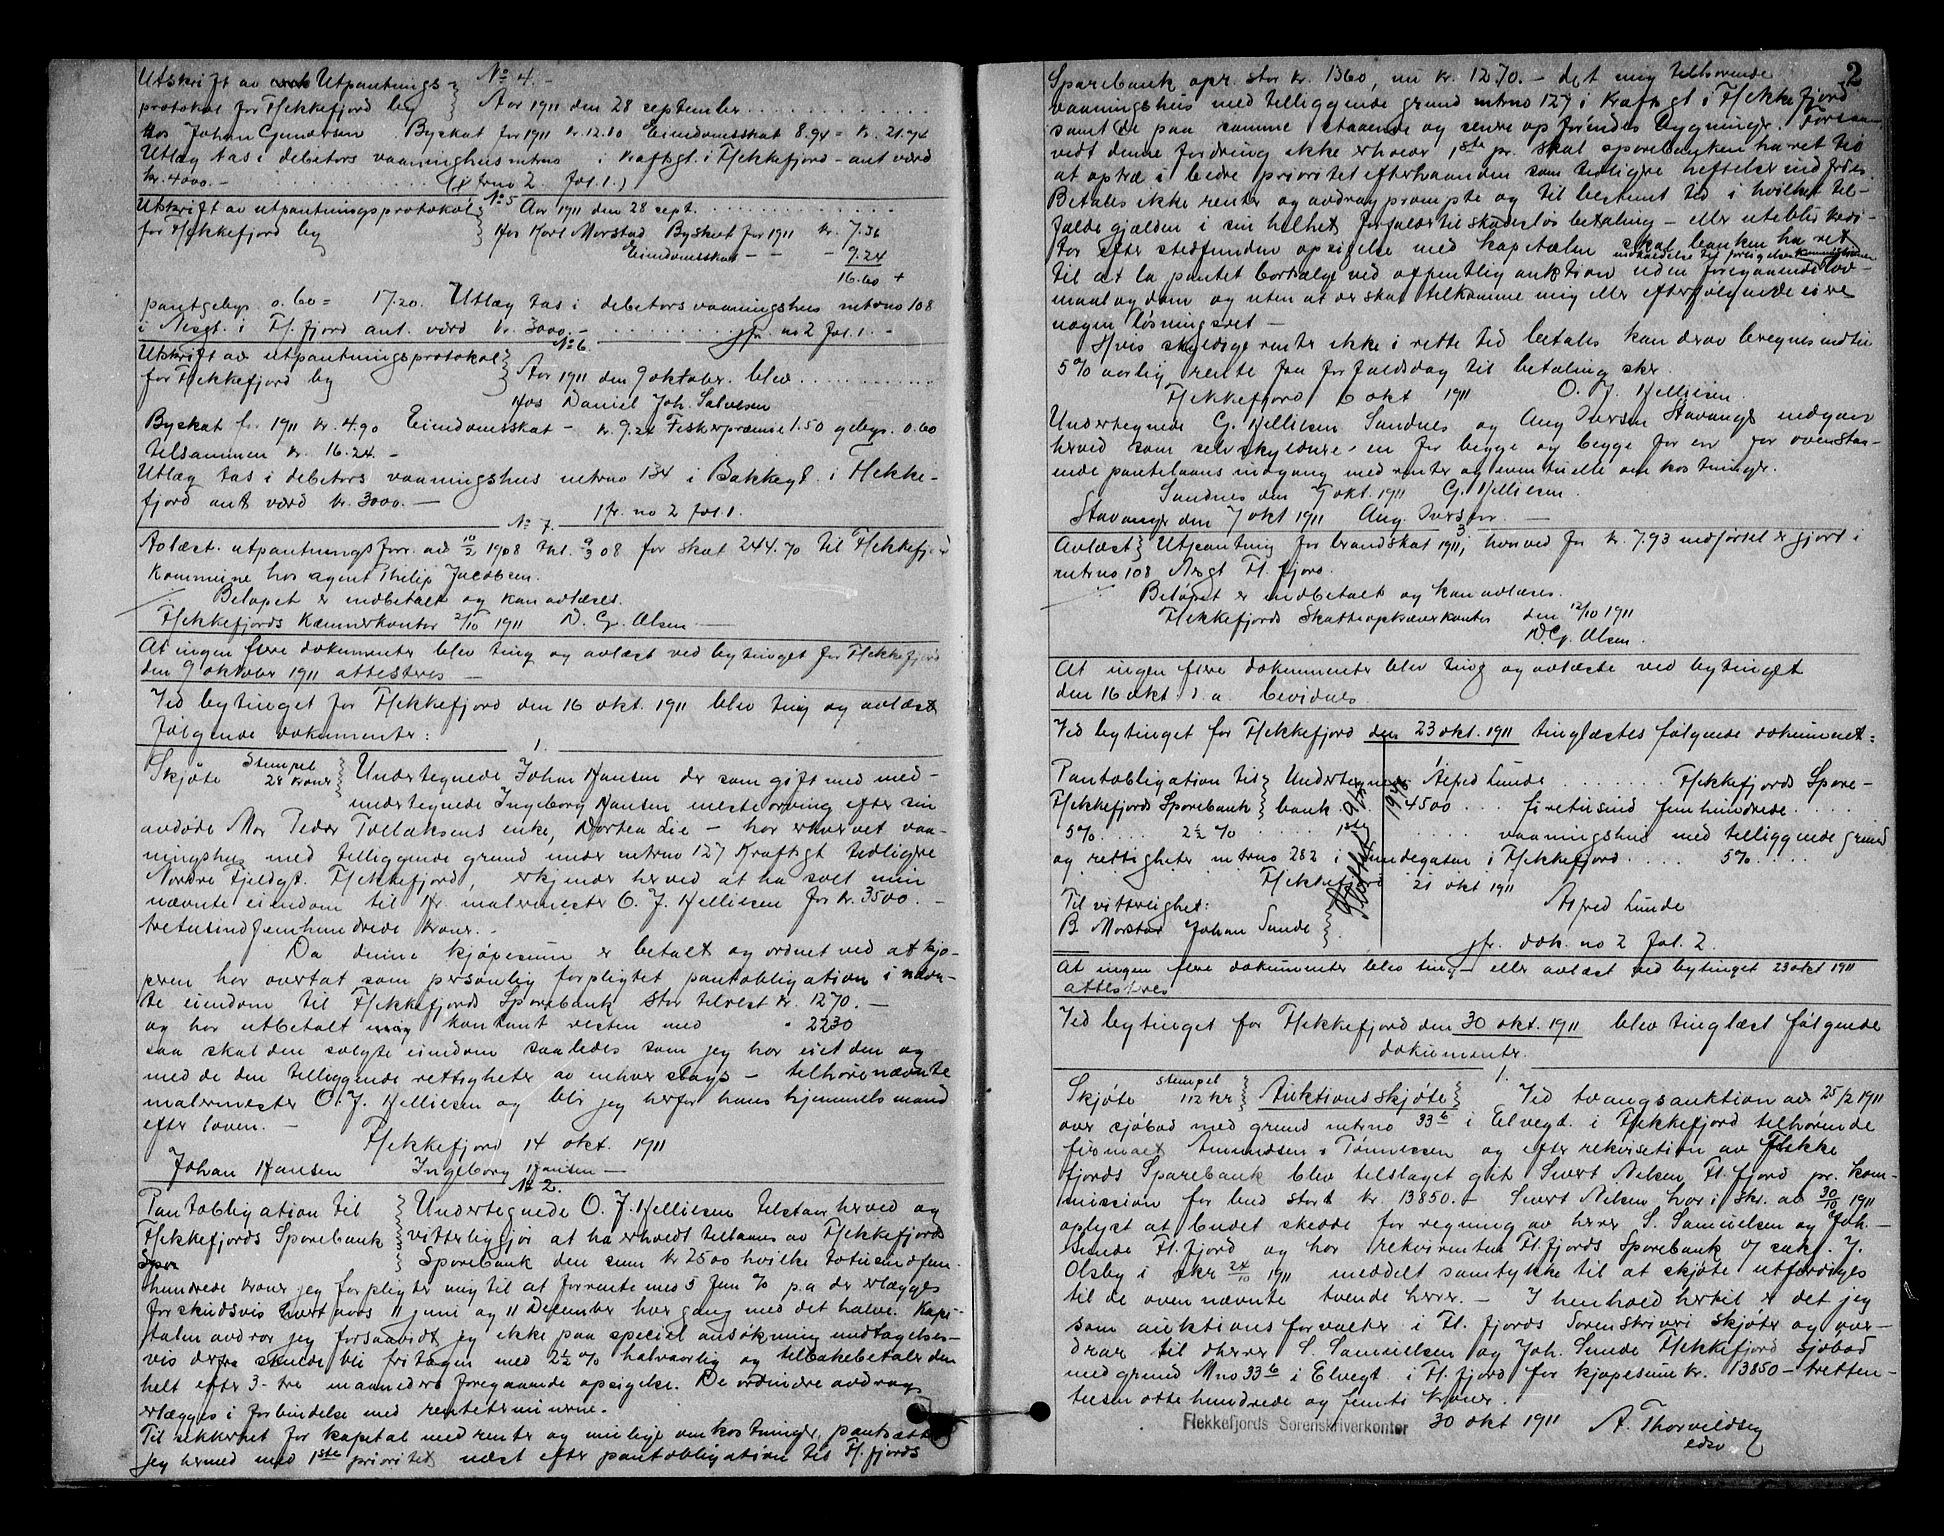 No 4.
Utskrift av Utpantnings-
protokol for Flekkefjord by } Aar 1911 den 28 september
Hos Johan Gundersen Byskat for 1911 kr. 12.80 Eiendomsskat 8.94 = kr. 21.74
Utlæg tas i debitors vaaninghus mtrno i Kraftgt. i Flekkefjord - ant værd
kr. 4000.- (jfrno 2 fol. 1.)
No 5
Utskrift av utpantningsprotokol } Aar 1911 den 28 sept.
for Flekkefjord by } Hos Karl Morstad Byskat for 1911 kr. 7.36
Eiendomsskat - - - 9.24
16.60 +
pantgebyr 0.60 = 17.20. Utlæg tas i debitors vaaningshus mtrno 108
i Nesgt. i Fl.fjord ant. værd kr. 3000.- jfr. no 2 fol 1.-
No 6
Utskrift av utpantningsprotokol
for Flekkefjord by } Aar 1911 den 9 oktober blev
Hos Daniel Joh. Salvesen
Byskat fr. 1911 kr. 4.90 Eiendomsskat - kr. 9.24 Fiskerpræmie 1.50 gebyr. 0.60
tilsammen kr. 16.24.-
Utlæg tas i debitors vaaningshus mtrno 134 i Bakkegt. i Flekke-
fjord ant værd kr. 3000.-
jfr. no 2 fol. 1.
No 7.
Avlæst. utpantningsforr. av 10/2 1908 tnl. 9/3 08 for skat 244.70 til Flekkefjord
Kommune hos agent Philip Jacobsen.
Beløpet er indbetalt og kan avlæses.
Flekkefjords Kæmnerkontor 2/10 1911 D. G. Olsen
At ingen flere dokumenter blev ting og avlæst ved bytinget for Flekkefjord
den 9 oktober 1911 attesteres -
Ved bytinget for Flekkefjord den 16 okt. 1911 blev ting og avlæst
følgende dokumenter:
1.
Skjøte Stempel 28 kroner } Undertegnede Johan Hansen der som gift med med-
undertegnede Ingeborg Hansen næste arving efter sin
avdøde Mor Peder Tollaksens enke, Dortea Lie - har erhvervet vaa-
ningshus med tilliggende grund under mtrno 127 Kraftsgt tidligere
Nordre Fjeldgt. Flekkefjord, erkjender herved at ha solt min
nævnte eiendom til Hr. malermester O. J. Helliesen for kr. 3500.-
tretusindfemhundrede kroner.-
Da denne kjøpesum er betalt og ordnet ved at kjø-
peren har overtat som personlig forpligtet pantobligation i nævn-
te eiendom til Flekkefjords Sparebank stor tilrest kr. 1270.-
og har utbetalt mig kontant resten med " 2230
saa skal den solgte eiendom saaledes som jeg har eiet den og
med de den tilliggende rettigheter av enhver slags - tilhøre nævnte
malermester O. J. Helliesen og blir jeg herfor hans hjemmelsmand
efter loven.-
Flekkefjord 14 okt. 1911
Johan Hansen Ingeborg Hansen -
No 2.
Pantobligation til } Undertegnede O. J. Helliesen tilstaar herved og
Flekkefjords Sparebank } vitterliggjør at ha erholdt tillaans av Flekkefjords
Spar Sparebank den sum kr 2500 hvilke totusindfem-
hundrede kroner jeg forpligter mig til at forrente med 5 fem % p.a. der erlægges
forskudsvis hvert aars 11 juni og 11 December hver gang med det halve. Kapi-
talen avdrar jeg forsaavidt jeg ikke paa speciel ansøkning undtagelses-
vis derfra skulde bli fritagen med 2½ % halvaarlig og tilbakebetaler den
helt efter 3- tre maaneders foregaaende opsigelse. De ordinære avdrag
erlægges i forbindelse med renteterminerne.
Til sikkerhet for kapital med renter og mulige omkostninger, pantsætter
jeg hermed med 1ste prioritet næst efter pantobligation til Fl.fjords
2
Sparebank opr. stor kr. 1360, nu kr. 1270.- det mig tilhørende
vaaningshus med tilliggende grund mtrno 127 i Kraftsgt i Flekkefjord
samt de paa samme staaende og senere opførendes bygninger. Forsaa-
vidt denne fordring ikke erholder 1ste pr. skal sparebanken ha ret til
at optræ i bedre prioritet efterhaanden som tidligere heftelser indfries.
Betales ikke renter og avdrag prompte og til bestemt tid i hvilket til-
fælde gjælden i sin helhet forfalder til skadesløs betaling - eller uteblir kredi-
tor efter stedfunden opsigelse med kapitalen skal banken ha ret
indkaldelse til forligelseskommissionen
til at la pantet bortsælge ved offentlig auktion uden foregaaende lov-
maal og dom og uten at der skal tilkomme mig eller efterfølgende eiere
nogen løsningsret -
Hvis skyldige renter ikke i rette tid betales kan derav beregnes indtil
5% aarlig rente fra forfaldsdag til betaling sker.
Flekkefjord 6 okt 1911 O. J. Helliesen.
Undertegnede G. Helliesen Sandnes og Aug Iversen Stavanger indgaar
herved som selvskyldnere, en for begge og begge for en for ovenstaa-
ende pantelaans indgang med renter og eventuelle omkostninger.
Sandnes den 7 okt. 1911 G. Helliesen.
Stavanger den 7 okt 1911 Aug. Iversen.
3
Avlæst } Utpantning for brandskat 1911, hvorved for kr. 7.93 utførsel er gjort i
mtrno 108 Nesgt Fl.fjord.
Beløpet er indbetalt og kan avlæses.
Flekkefjords Skatteopkræverkontor den 12/10 1911
D.G. Olsen.
At ingen flere dokumenter blev ting og avlæste ved bytinget
den 16 okt. d. a bevidnes
Ved bytinget for Flekkefjord den 23 okt. 1911 tinglæstes følgende dokument:
1
Pantobligation til } Undertegnede Alfred Lunde Flekkefjords Spare-
Flekkefjords Sparebank } bank 4500 firetusind femhundrede
5% 2½ % 1ste vaaningshus med tilliggende grund
og rettigheter mtrno 282 i Sundegaten i Flekkefjord 5%
Flekkefjord 21 okt 1911
Til vitterlighet: Alfred Lunde
B Morstad Johan Sunde }
jfr. dok. no 2 fol. 2.
At ingen flere dokumenter blev ting- eller avlæst ved bytinget 23 okt 1911
attesteres
Ved bytinget for Flekkefjord den 30 okt. 1911 blev tinglæst følgende
dokumenter.
1.
Skjøte stempel 112 kr } Auktionsskjøte } Ved tvangsauktion av 25/2 1911
over sjøbod med grund mtrno 33b i Elvegt. i Flekkefjord tilhørende
firmaet Amundsen & Tønnessen og efter rekvisition av Flekke
fjords Sparebank blev tilslaget git Sivert Nilsen Fl.fjord pr. kom-
mission for bud stort kr. 13850.- Sivert Nilsen har i skr. av 30/10 1911
oplyst at budet skedde for regning av herrer S. Samuelsen og Joh.
Sunde Fl.fjord og har rekvirenten Fl.fjords Sparebank v/ sakf. J.
Olsby i skr 24/10 1911 meddelt samtykke til at skjøte utfærdiges
til de ovennævnte tvende herrer.- I henhold hertil er det jeg
som auktionsforvalter i Fl. fjords Sorenskriveri skjøter og over-
drar til dherrer S. Samuelsen og Joh. Sunde Flekkefjord sjøbod
med grund Mno 33b i Elvegt. i Fl.fjord for kjøpesum kr. 13850 - tretten-
tusen otte hundrede og femti kroner.
Flekkefjords Sorenskriverkontor 30 okt 1911 A. Thorvildsen
edsv